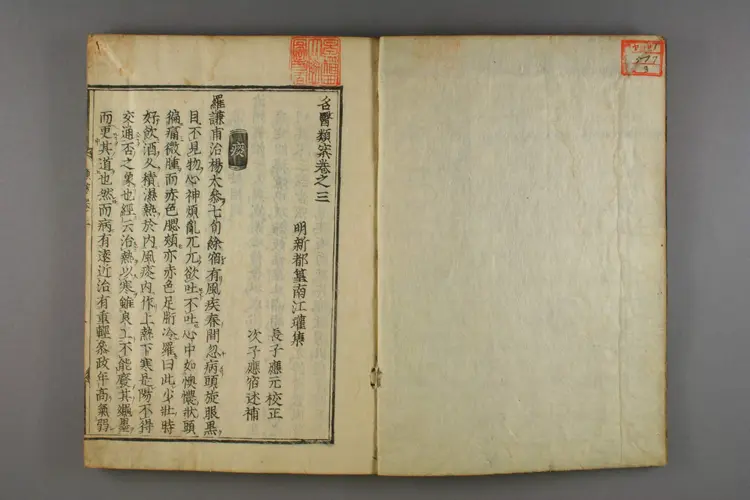 名醫類案卷之三
明新都篁南江瓘集
長子應元校正
次子應宿述補
痰
羅謙甫治楊太參七旬餘宿有風疾春間忽病頭旋眼黑
目不見物心神煩亂兀兀欲吐不吐心中如懊憹狀頭
偏痛微腫而赤色腮頰亦赤色足胻冷羅曰此少壯時
好飲酒久積濕熱於內風痰內作上熱下寒是陽不得
交通否之象也經云治熱以寒雖良工不能廢其繩墨
而更其道也然而病有遠近治有重輕參政年高氣弱